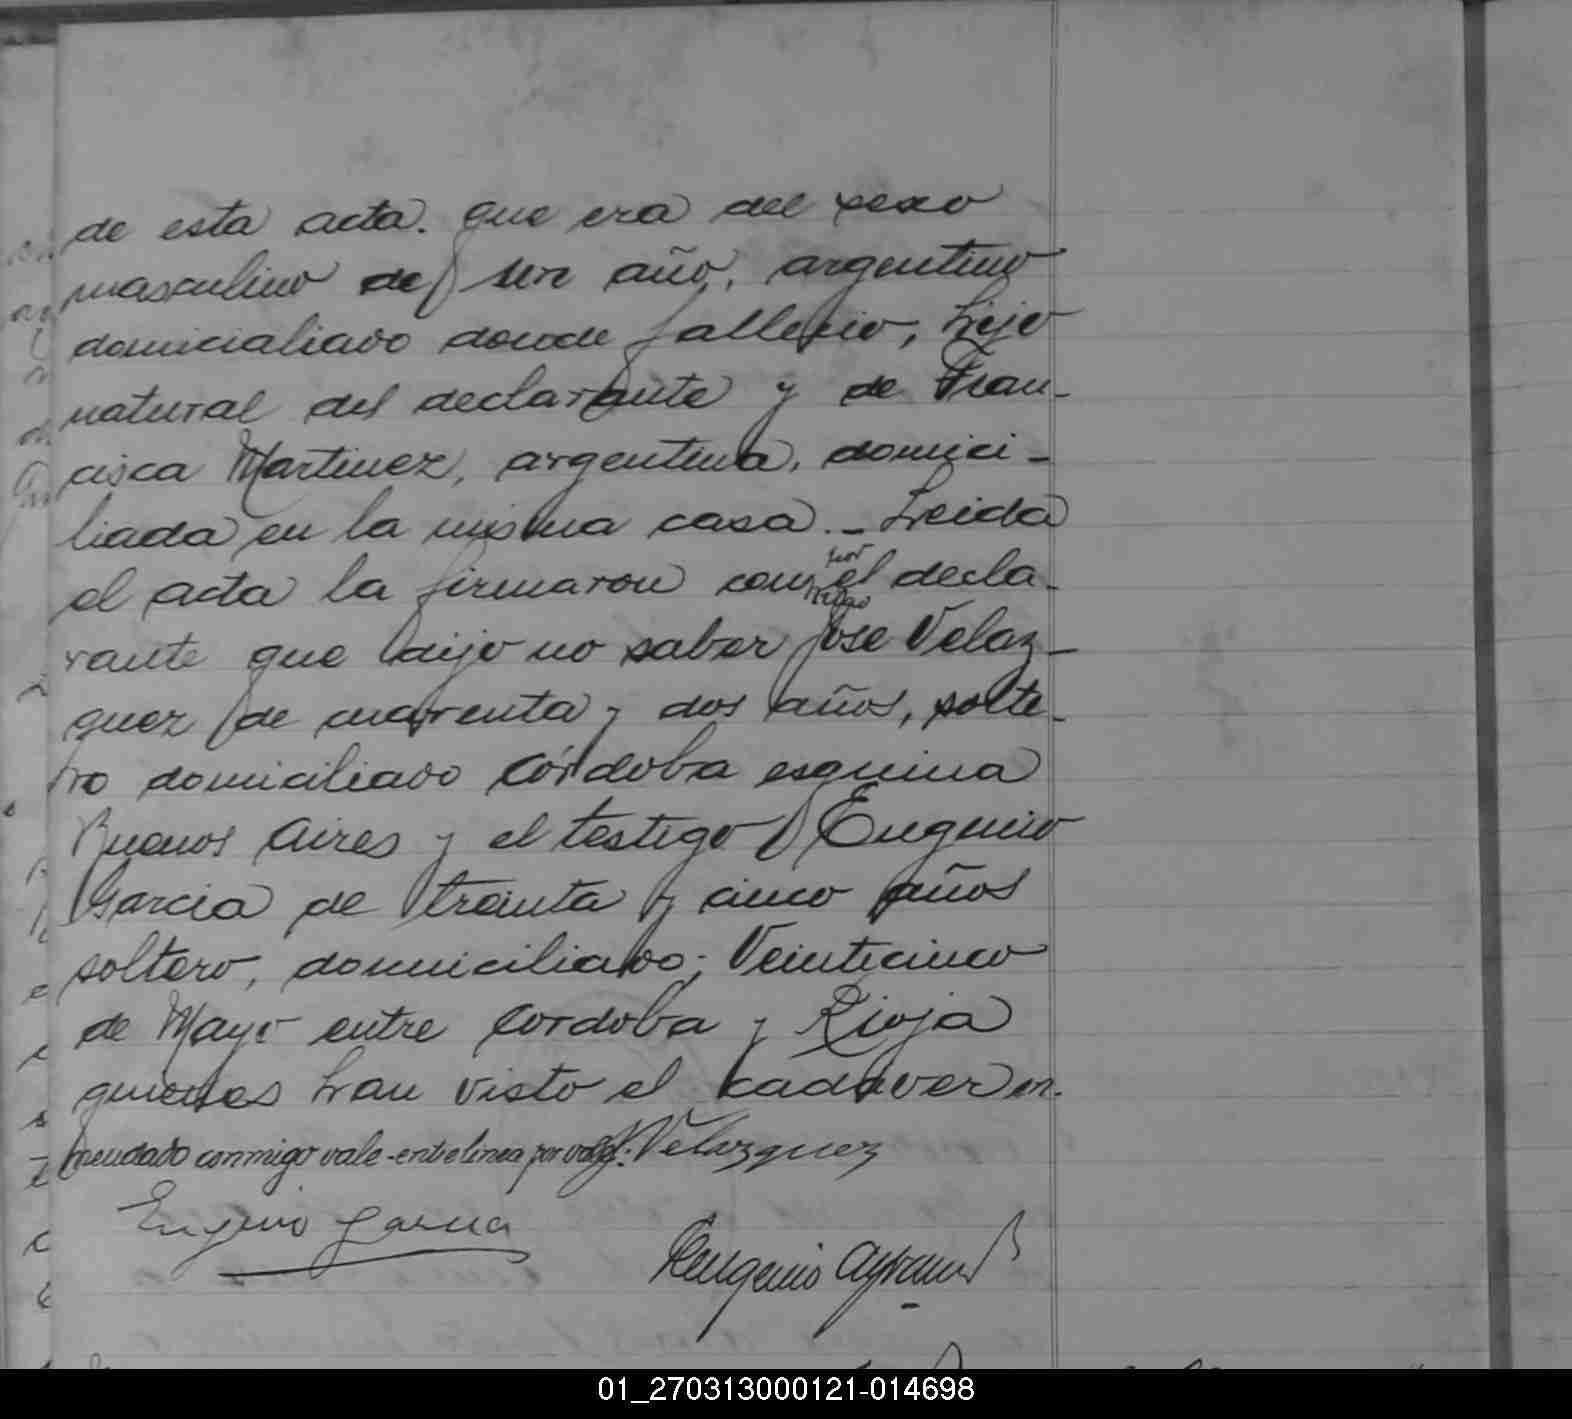 de esta acta. que era del sexo
masculino de un año, argentino
domicialiado donde fallecio, hijo
natural del declarante y de Fran-
cisca Martinez, argentina, domici-
liada en la misma casa. - Leida
el acta la firmaron conmigo por el decla-
rante que dijo no saber Jose Velaz-
quez de cuarenta y dos años, solte-
ro domiciliado Córdoba esquina
Buenos Aires y el testigo Eugenio
Garcia de treinta y cinco años
soltero, domiciliado; Veinticinco
de Mayo entre Cordoba y Rioja
quienes han visto el cadaver en-
mendado conmigo vale - entrelinea por vale J. Velazquez
Eugenio Garcia
Eugenio
01_270313000121-014698